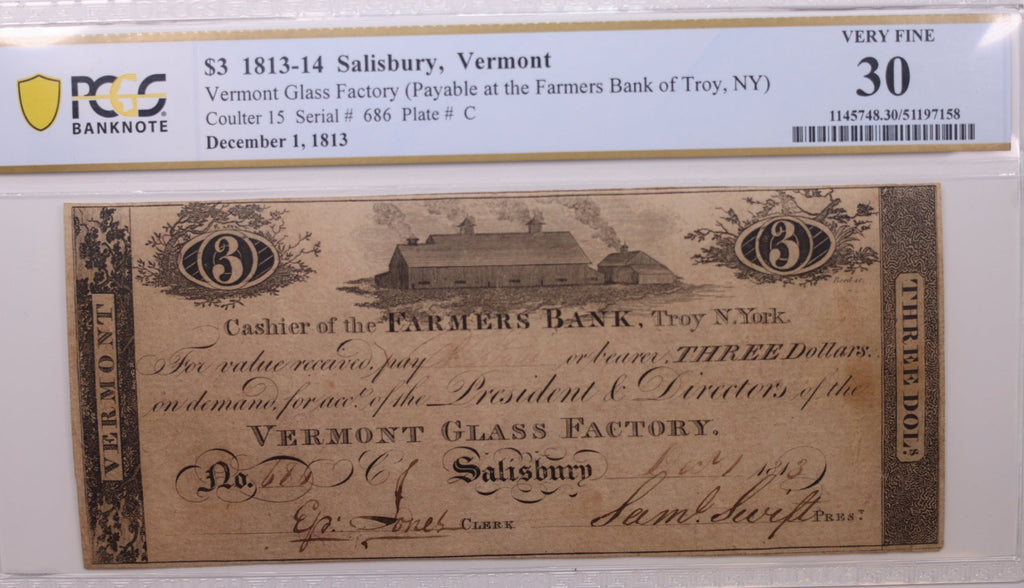 $3 1813-14 Salisbury, Vermont
VERY FINE
PCGS BANKNOTE
Vermont Glass Factory (Payable at the Farmers Bank of Troy, NY)
30
Coulter 15 Serial # 686 Plate # C
1145748.30/51197158
December 1, 1813
3
3
Cashier of the FARMERS BANK, Troy N.York.
For value received, pay or bearer, THREE Dollars.
on demand, for acc.t of the President & Directors of the
VERMONT GLASS FACTORY.
No. 686 C Salisbury Dec.r 1 1813
Ep: Jones CLERK Sam.l Swift PRES.T
VERMONT
THREE DOL.S